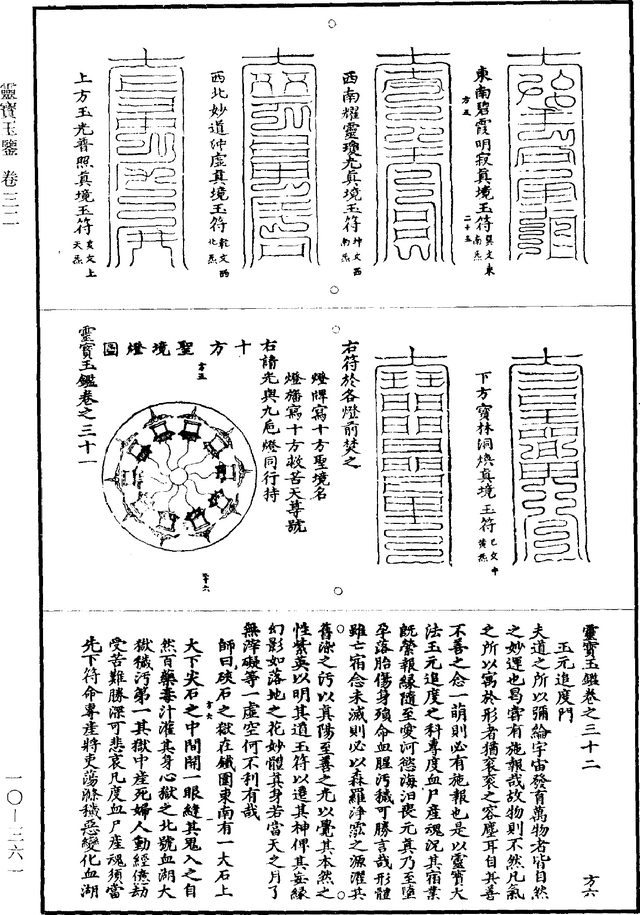 靈寶玉鑒 卷三二
一〇—三六一
東南碧霞明寂真境玉符
巽文東南炁
方五
二十五
西南耀靈瓊光真境玉符
坤文西南炁
西北妙道冲虛真境玉符
乾文西北炁
上方玉光普照真境玉符
亥文上天炁
下方寶林洞煥真境玉符
巳文中黃炁
右符於各燈前焚之
燈牌寫十方聖境名
燈旛寫十方救苦天尊號
右請光與九巵燈同行持
十方聖境燈圖
方五
靈寶玉鑑卷之三十一
靈寶玉鑑卷之三十二
方六
玉元追度門
夫道之所以彌綸宇宙發育萬物者皆自然
之妙運也曷嘗有施報哉故物則不然凡氣
之所以寓於形者猶衮衮之容塵耳自其善
不善之念一萌則必有施報也是以靈寶大
法玉元追度之科專度血尸產魂况其宿業
既縈報緣隨至愛河慾海汩喪元真乃至墮
孕落胎傷身殞命血腥污穢可勝言哉形體
雖亡宿念未滅則必以森羅淨霐之源濯其
舊染之污以真陽至善之光以覺其本然之
性紫英以明其道玉符以遷其神俾其妄緣
幻影如落地之花妙體真身若當天之月了
無滓礙等一虛空何不利有哉
師曰硤石之獄在鐵圍東南有一大石上
大下尖石之中間開一眼縫其鬼入之自
方六
然百藥毒汁灌其身心獄之北號血湖大
獄穢污第一其獄中產死婦人動經億劫
受苦難勝深可悲哀凡度血尸產魂須當
先下符命專差將吏蕩滌穢惡變化血湖